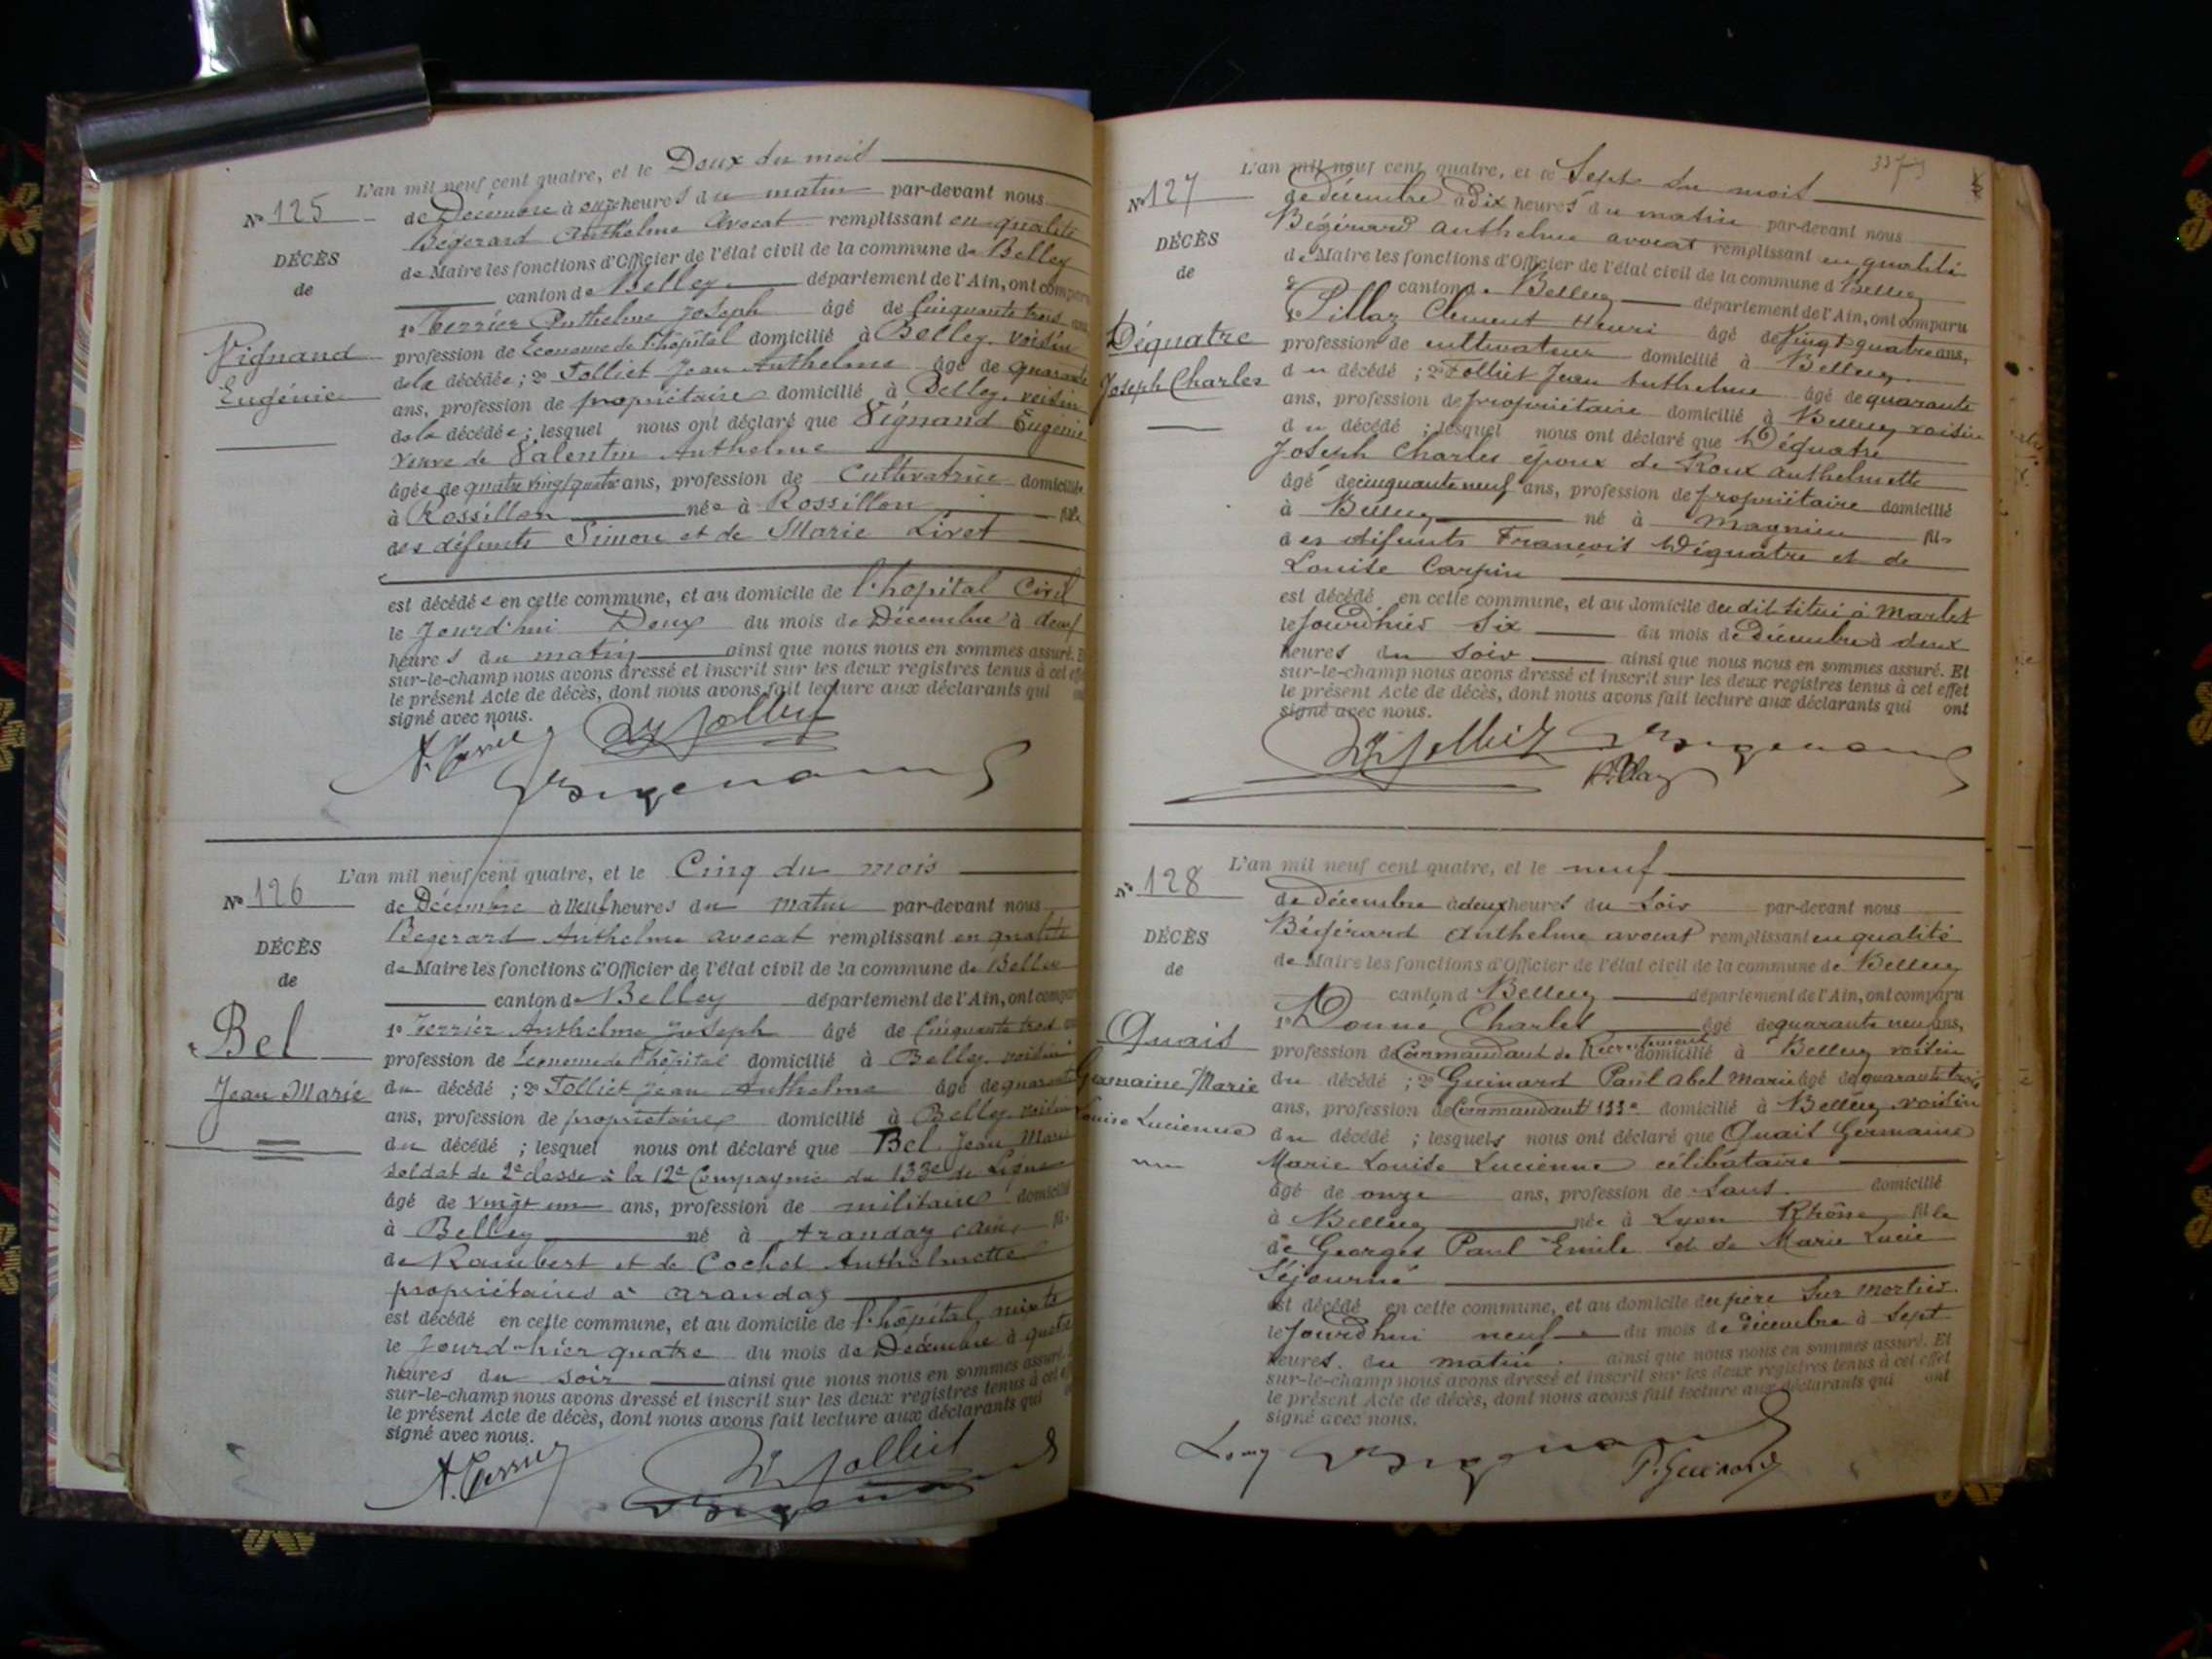 L'an mil neuf cent quatre, et le Deux du mois
N° 125
de Décembre à onze heures du matin par-devant nous
Bégerard Anthelme Avocat remplissant en qualité
DÉCÈS
de Maire les fonctions d'Officier de l'état civil de la commune de Belley
de
canton de Belley département de l'Ain, ont comparu
1° Terrier Anthelme Joseph âgé de Cinquante trois ans
Vignand
profession de Econome de l'hôpital domicilié à Belley, voisin
Eugénie
de la décédée ; 2° Tolliet Jean Anthelme âgé de quarante
ans, profession de propriétaire domicilié à Belley, voisin
de la décédée ; lesquel nous ont déclaré que Vignand Eugénie
veuve de Valentin Anthelme
âgée de quatre vingt quatre ans, profession de Cultivatrice domiciliée
à Rossillon née à Rossillon fille
des défunts Simon et de Marie Livet
est décédée en cette commune, et au domicile de l'hopital Civil
le Jourd'hui Deux du mois de Décembre à
heures du matin ainsi que nous nous en sommes assuré. Et
sur-le-champ nous avons dressé et inscrit sur les deux registres tenus à cet effet
le présent Acte de décès, dont nous avons fait lecture aux déclarants qui ont
signé avec nous.
L'an mil neuf cent quatre, et le Cinq du mois
N° 126
de Décembre à neuf heures du matin par-devant nous
Begerard Anthelme avocat remplissant en qualité
DÉCÈS
de Maire les fonctions d'Officier de l'état civil de la commune de Belley
de
canton de Belley département de l'Ain, ont comparu
Bel
1° Terrier Anthelme Joseph âgé de Cinquante trois ans
profession de Econome de l'hôpital domicilié à Belley, voisin
Jean Marie
du décédé ; 2° Tolliet Jean Anthelme âgé de quarante
ans, profession de propriétaire domicilié à Belley, voisin
du décédé ; lesquel nous ont déclaré que Bel Jean Marie
soldat de 2e classe à la 12e Compagnie du 133e de Ligne
âgé de vingt un ans, profession de militaire domicilié
à Belley né à Arandas (Ain) fils
de Rambert et de Cochet Anthelmette
propriétaires à Arandas
est décédé en cette commune, et au domicile de l'hôpital mixte
le Jourd'hier quatre du mois de Décembre à quatre
heures du soir ainsi que nous nous en sommes assuré.
sur-le-champ nous avons dressé et inscrit sur les deux registres tenus à cet effet
le présent Acte de décès, dont nous avons fait lecture aux déclarants qui
signé avec nous.
A. Terrier Tolliet
L'an mil neuf cent quatre, et le Sept du mois
N° 127
de décembre à Dix heures du matin par-devant nous
Bégérard Anthelme avocat remplissant en qualité
DÉCÈS
de Maire les fonctions d'Officier de l'état civil de la commune d Belley
de
canton d Belley département de l'Ain, ont comparu
1° Pillaz Clement Henri âgé de Vingt quatre ans,
Déquatre
profession de cultivateur domicilié à Belley
Joseph Charles
du décédé ; 2° Tolliet Jean Anthelme âgé de quarante
ans, profession de propriétaire domicilié à Belley voisin
du décédé ; lesquel nous ont déclaré que Déquatre
Joseph Charles époux de Roux Anthelmette
âgé de cinquante neuf ans, profession de propriétaire domicilié
à Belley né à Magnieu fils
des défunts François Déquatre et de
Louise Carpin
est décédé en cette commune, et au domicile dudit situé à
le Jourd'hier Six du mois de Décembre à deux
heures du soir ainsi que nous nous en sommes assuré. Et
sur-le-champ nous avons dressé et inscrit sur les deux registres tenus à cet effet
le présent Acte de décès, dont nous avons fait lecture aux déclarants qui ont
signé avec nous.
Tolliet
Pillaz
L'an mil neuf cent quatre, et le neuf
N° 128
de décembre à deux heures du soir par-devant nous
Bégérard Anthelme avocat remplissant en qualité
DÉCÈS
de Maire les fonctions d'Officier de l'état civil de la commune de Belley
de
canton d Belley département de l'Ain, ont comparu
1° Donné Charles âgé de quarante neuf ans,
Quais
profession de Commandant de Recrutement domicilié à Belley voisin
Germaine Marie
du décédé ; 2° Guinard Paul Abel Marie âgé de quarante trois
ans, profession de Commandant 133e domicilié à Belley, voisin
Louise Lucienne
du décédé ; lesquels nous ont déclaré que Quais Germaine
Marie Louise Lucienne célibataire
âgé de onze ans, profession de Sans domicilié
à Belley née à Lyon Rhône fille
de Georges Paul Emile et de Marie Lucie
Séjourné
est décédé en cette commune, et au domicile du père
le Jourd'hui neuf du mois de décembre à sept
heures du matin ainsi que nous nous en sommes assuré. Et
sur-le-champ nous avons dressé et inscrit sur les deux registres tenus à cet effet
le présent Acte de décès, dont nous avons fait lecture aux déclarants qui ont
signé avec nous.
P. Guinard